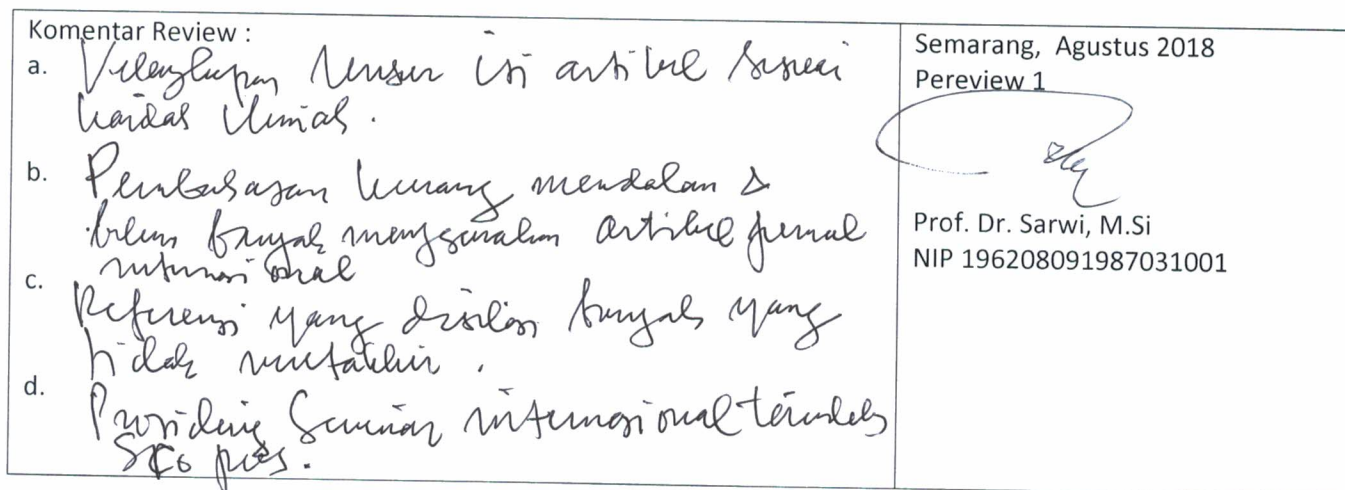 Komentar Review :
a. Kelengkapan Unsur isi artikel sesuai
kaidah ilmiah.
b. Pembahasan kurang mendalam &
belum banyak menggunakan artikel jurnal
internasional
c. Referensi yang disitasi banyak yang
tidak mutakhir.
d. Prosiding Seminar internasional terindeks
Scopus.
Semarang, Agustus 2018
Pereview 1
Prof. Dr. Sarwi, M.Si
NIP 196208091987031001